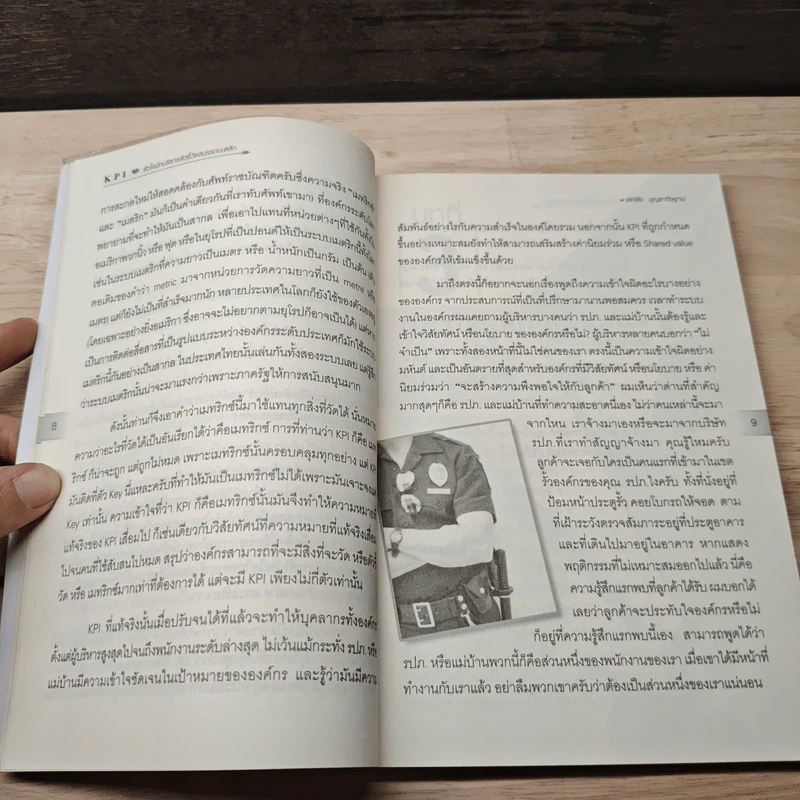 KPI หัวใจนักบริหารตัวชี้วัดสมรรถนะหลัก
การสะกดใหม่ให้สอดคล้องกับศัพท์ราชบัณฑิตครับซึ่งความจริง "เมทริกซ์"
และ "เมตริก" มันก็เป็นคำเดียวกันที่เราทับศัพท์เขามา) ที่องค์กรระดับโลก
พยายามที่จะทำให้มันเป็นสากล เพื่อเอาไปแทนที่หน่วยต่างๆที่ใช้กันทั้งใน
อเมริกาพวกนิ้ว หรือ ฟุต หรือในยุโรปที่เป็นปอนด์ให้เป็นระบบเมตริกนี้ทั้งโลก
เช่นในระบบเมตริกที่ความยาวเป็นเมตร หรือ น้ำหนักเป็นกรัม เป็นต้น
ตอเติมของคำว่า metric มาจากหน่วยการวัดความยาวที่เป็น metre หรือ
เมตร) แต่ก็ยังไม่เป็นที่สำเร็จมากนัก หลายประเทศในโลกก็ยังใช้ของตัวเอง
(โดยเฉพาะอย่างยิ่งอเมริกา ซึ่งอาจจะไม่อยากตามยุโรปก็อาจเป็นได้)
เป็นการติดต่อสื่อสารที่เป็นรูปแบบระหว่างองค์กรระดับประเทศก็มักใช้ระบบ
เมตริกนี้กันอย่างเป็นสากล ในประเทศไทยนั้นเล่นกันทั้งสองระบบเลย แต่รู้สึก
ว่าระบบเมตริกนั้นน่าจะมาแรงกว่าเพราะภาครัฐให้การสนับสนุนมาก
ดังนั้นท่านก็จึงเอาคำว่าเมทริกซ์นี้มาใช้แทนทุกสิ่งที่วัดได้ นั่นหมาย
ความว่าอะไรที่วัดได้เป็นอันเรียกได้ว่าคือเมทริกซ์ การที่ท่านว่า KPI ก็คือ เมท
ริกซ์ ก็น่าจะถูก แต่ถูกไม่หมด เพราะเมทริกซ์นั้นครอบคลุมทุกอย่าง แต่ KPI
มันติดที่ตัว Key นี่แหละครับที่ทำให้มันเป็นเมทริกซ์ไม่ได้เพราะมันเจาะจงแค่
Key เท่านั้น ความเข้าใจที่ว่า KPI ก็คือเมทริกซ์นั้นมันจึงทำให้ความหมายที่
แท้จริงของ KPI เสื่อมไป ก็เช่นเดียวกับวิสัยทัศน์ที่ความหมายที่แท้จริงเสื่อม
ไปจนคนที่ใช้สับสนไปหมด สรุปว่าองค์กรสามารถที่จะมีสิ่งที่จะวัด หรือตัว
วัด หรือ เมทริกซ์มากเท่าที่ต้องการได้ แต่จะมี KPI เพียงไม่กี่ตัวเท่านั้น
KPI ที่แท้จริงนั้นเมื่อปรับจนได้ที่แล้วจะทำให้บุคลากรทั้งองค์กร
ตั้งแต่ผู้บริหารสูงสุดไปจนถึงพนักงานระดับล่างสุด ไม่เว้นแม้กระทั่ง รปภ. หรือ
แม่บ้านมีความเข้าใจชัดเจนในเป้าหมายขององค์กร และรู้ว่ามันมีความ
8
เอกชัย บุญยาทิษฐาน
สัมพันธ์อย่างไรกับความสำเร็จในองค์โดยรวม นอกจากนั้น KPI ที่ถูกกำหนด
ขึ้นอย่างเหมาะสมยังทำให้สามารถเสริมสร้างค่านิยมร่วม หรือ Shared value
ขององค์กรให้เข้มแข็งขึ้นด้วย
มาถึงตรงนี้ก็อยากจะนอกเรื่องพูดถึงความเข้าใจผิดอะไรบางอย่าง
ขององค์กร จากประสบการณ์ที่เป็นที่ปรึกษามานานพอสมควร เวลาทำระบบ
งานในองค์กรผมเคยถามผู้บริหารบางคนว่า รปภ. และแม่บ้านนั้นต้องรู้และ
เข้าใจวิสัยทัศน์ หรือนโยบาย ขององค์กรหรือไม่? ผู้บริหารหลายคนบอกว่า "ไม่
จำเป็น" เพราะทั้งสองหน้าที่นี้ไม่ใช่คนของเรา ตรงนี้เป็นความเข้าใจผิดอย่าง
มหันต์ และเป็นอันตรายที่สุดสำหรับองค์กรที่มีวิสัยทัศน์ หรือนโยบาย หรือ ค่า
นิยมร่วมว่า "จะสร้างความพึงพอใจให้กับลูกค้า" ผมเห็นว่าด่านที่สำคัญ
มากสุดๆก็คือ รปภ. และแม่บ้านที่ทำความสะอาดนี่เอง ไม่ว่าคนเหล่านี้จะมา
จากไหน เราจ้างมาเองหรือจะมาจากบริษัท
รปภ.ที่เราทำสัญญาจ้างมา คุณรู้ไหมครับ
ลูกค้าจะเจอกับใครเป็นคนแรกที่เข้ามาในเขต
รั้วองค์กรของคุณ รปภ.ไงครับ ทั้งที่นั่งอยู่ที่
ป้อมหน้าประตูรั้ว คอยโบกรถให้จอด ตาม
ที่เฝ้าระวังตรวจสัมภาระอยู่ที่ประตูอาคาร
และที่เดินไปมาอยู่ในอาคาร หากแสดง
พฤติกรรมที่ไม่เหมาะสมออกไปแล้ว นี่คือ
ความรู้สึกแรกพบที่ลูกค้าได้รับ ผมบอกได้
เลยว่าลูกค้าจะประทับใจองค์กรหรือไม่
ก็อยู่ที่ความรู้สึกแรกพบนี้เอง สามารถพูดได้ว่า
รปภ. หรือแม่บ้านพวกนี้ก็คือส่วนหนึ่งของพนักงานของเรา เมื่อเขาได้มีหน้าที่
ทำงานกับเราแล้ว อย่าลืมพวกเขาครับว่าต้องเป็นส่วนหนึ่งของเราแน่นอน
9